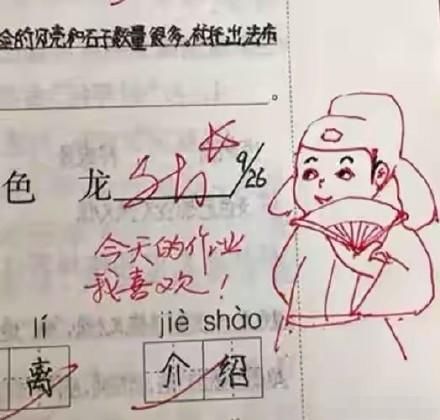 的贝壳和石子数量很多。衬托出去布
色 龙 9/26
今天的作业
我喜欢！
lí jiè shào
离 介绍